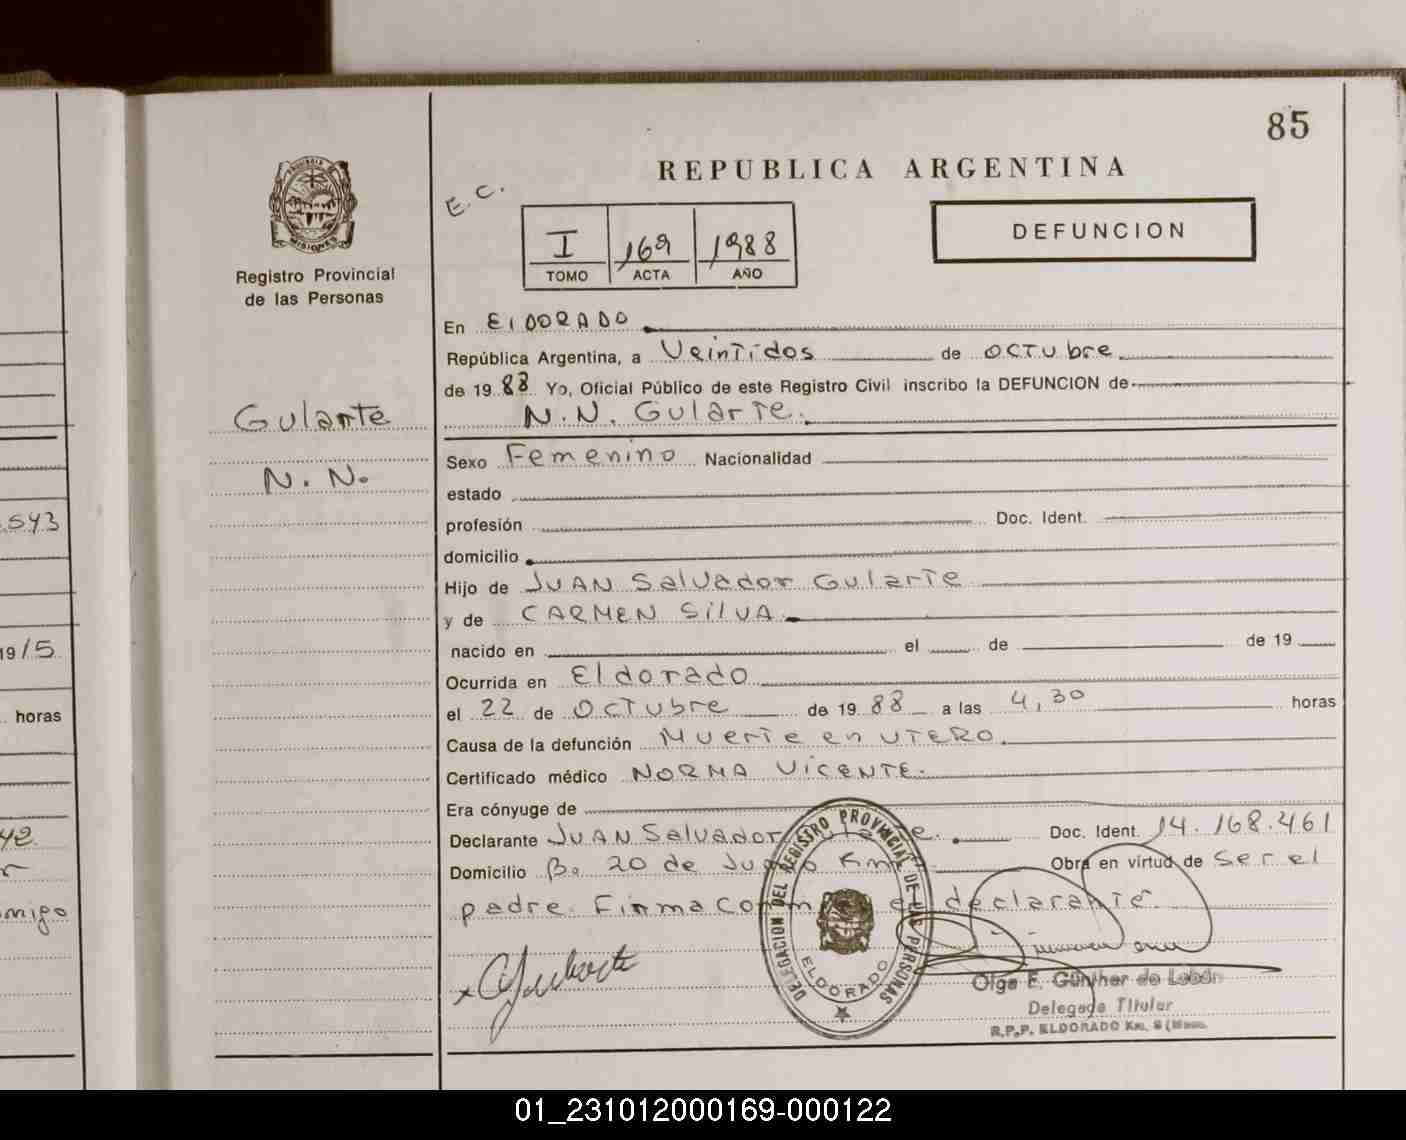 85
REPUBLICA ARGENTINA
E.C.
I 169 1988
TOMO ACTA AÑO
DEFUNCION
MISIONES
Registro Provincial
de las Personas
En ElDORADO
República Argentina, a Veintidos de OCTubre
de 1988 Yo, Oficial Público de este Registro Civil inscribo la DEFUNCION de
Gularte
N.N. Gularte.
N. N.
Sexo Femenino Nacionalidad
estado
.543
profesión Doc. Ident.
domicilio
Hijo de JUAN Salvador Gularte
y de CARMEN SilVA
19/5
nacido en el de de 19
Ocurrida en Eldorado
horas
el 22 de OCTubre de 1988 a las 4,30 horas
Causa de la defunción Muerte en UTERO.
Certificado médico NORMA VicENTE.
Era cónyuge de
42.
Declarante JUAN Salvador Doc. Ident. 14.168.461
Domicilio Bo 20 de Km Obra en virtud de Ser el
omigo
padre. Firma declarante.
DELEGACION DEL REGISTRO PROVINCIAL DE LAS PERSONAS
ELDORADO
Olga E. Günther de Lobán
Delegada Titular
R.P.P. ELDORADO Km.
01_231012000169-000122